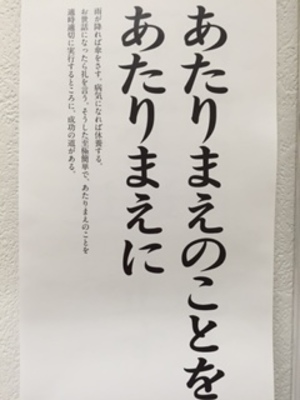 あたりまえのことを
あたりまえに
雨が降れば傘をさす。病気になれば休養する。
お世話になったら礼を言う。そうした至極簡単で、あたりまえのことを
適時適切に実行するところに、成功の道がある。